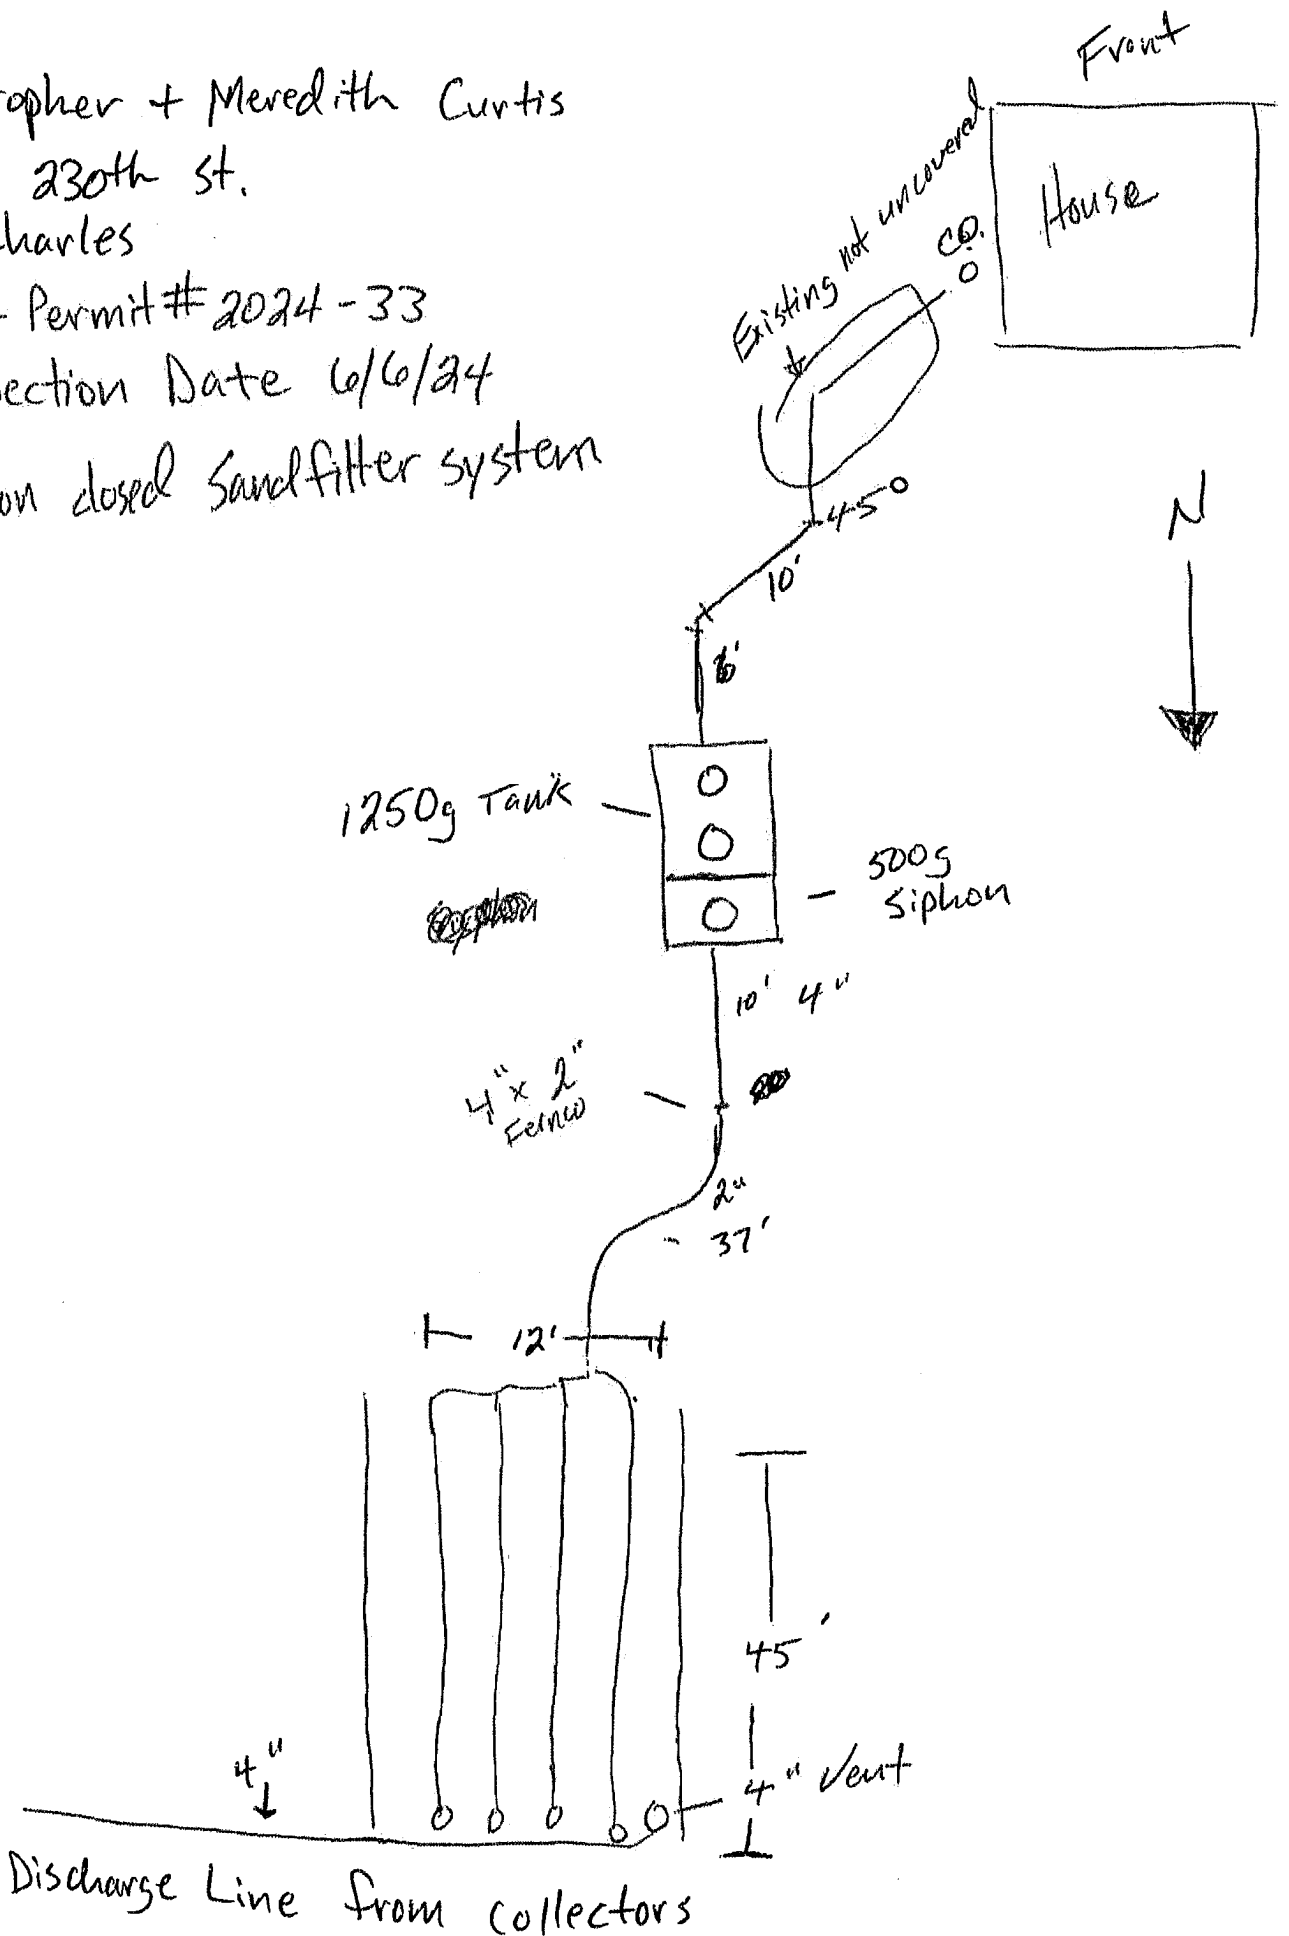 ropher + Meredith Curtis
230th st.
Charles
- Permit # 2024-33
ection Date 6/6/24
on dosed Sandfilter system
Front
House
C.O.
Existing not uncovered
45°
10'
N
1250g Tank
500g
Siphon
10' 4"
4" x 2"
Fernco
2"
37'
12'
45'
4" Vent
4"
Discharge Line from collectors